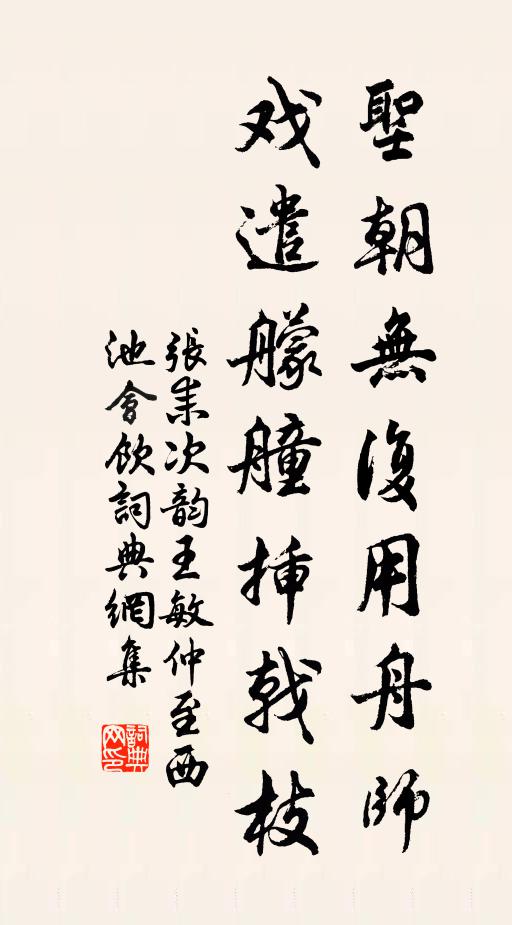 聖朝無復用舟師
戏遣艨艟揷戟枝
張耒次韵王敏仲至西
池會飲詞典網集
詞典网印